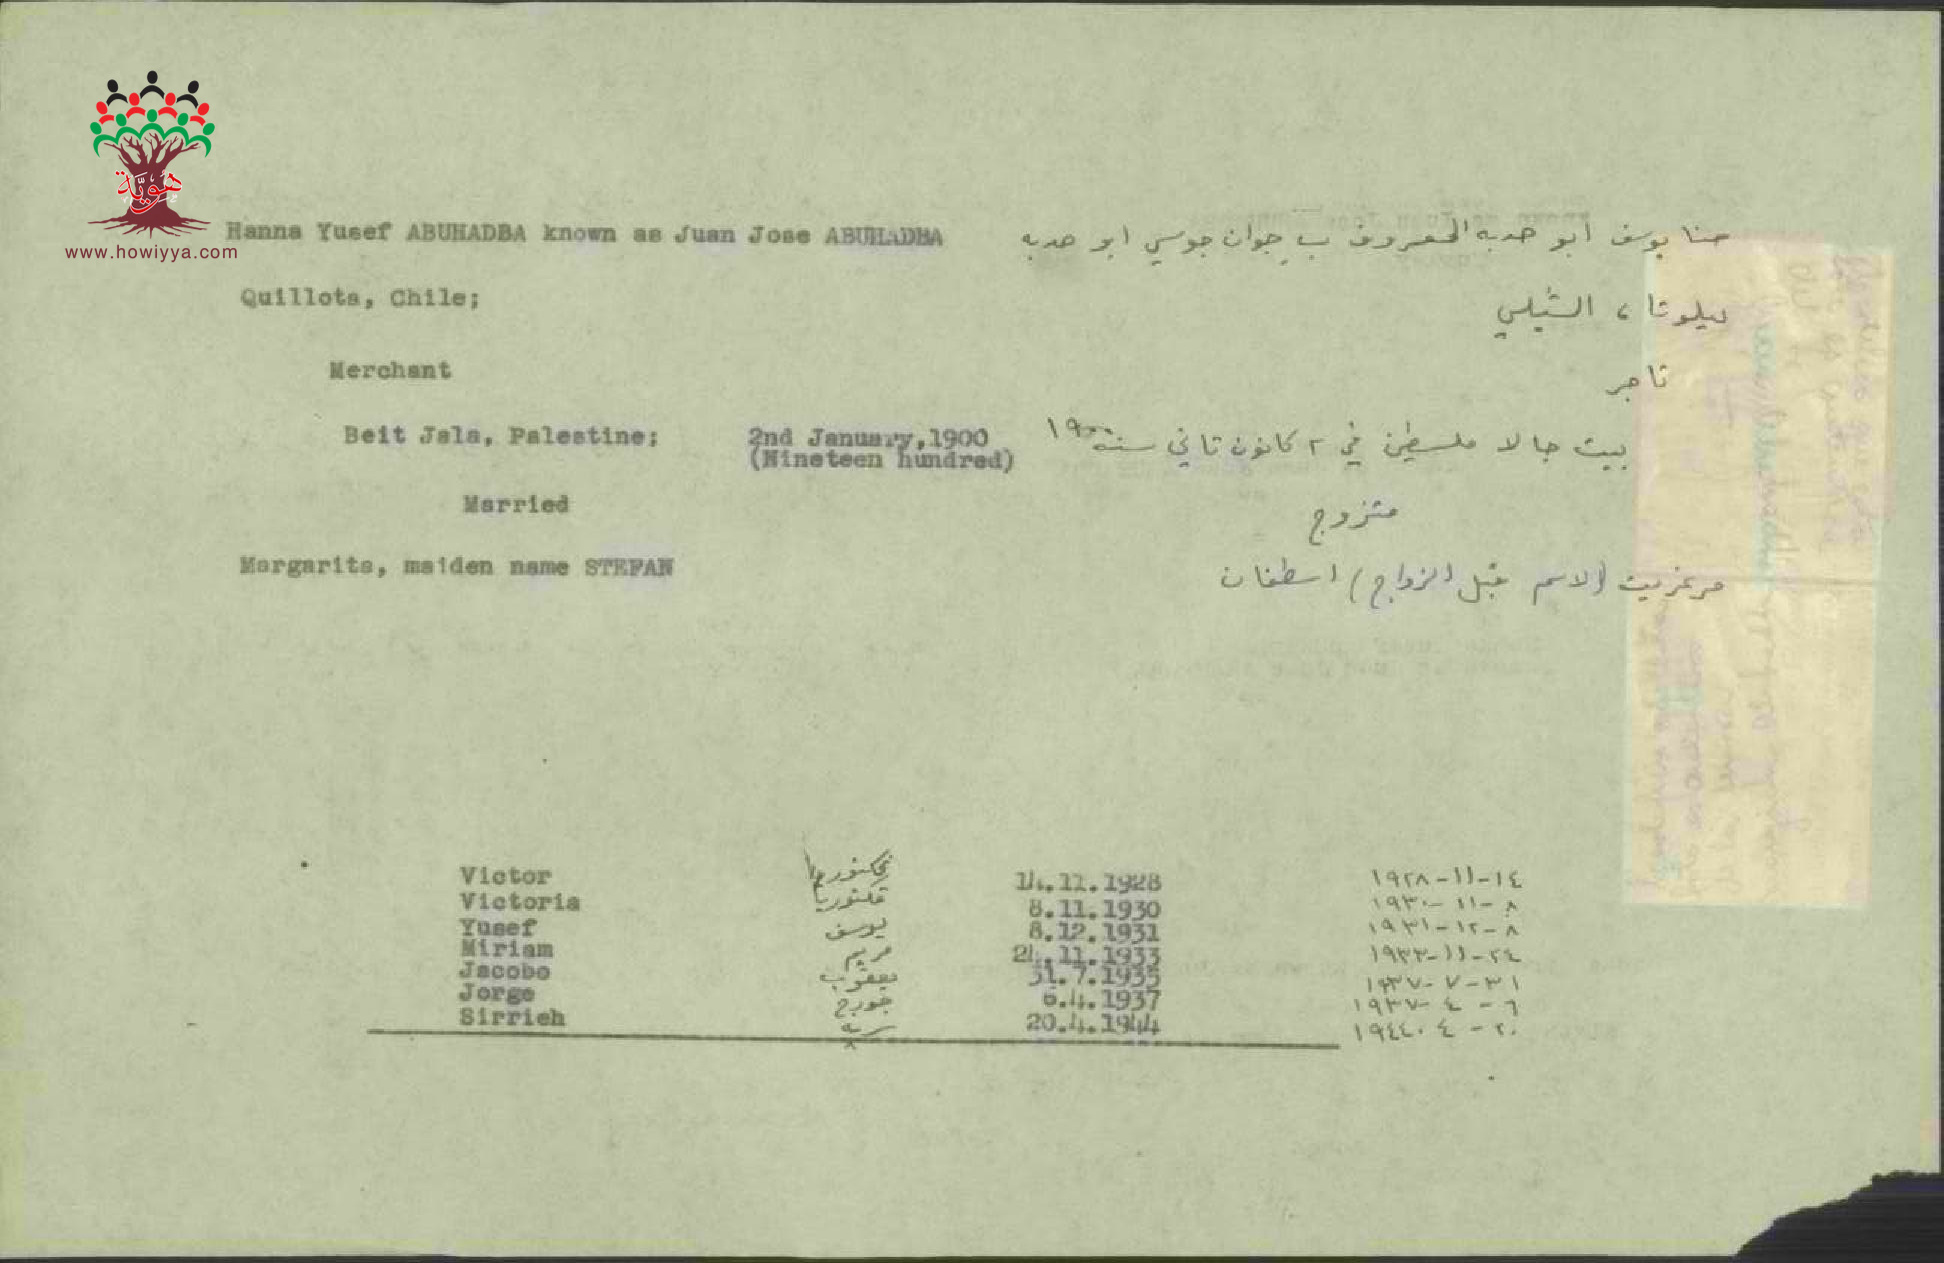 هوية
www.howiyya.com
Hanna Yusef ABUHADBA known as Juan Jose ABUHADBA
حنا يوسف ابو حدبه المعروف ب جوان جوسي ابو حدبه
Quillota, Chile;
كيلوتا ، الشيلي
Merchant
تاجر
Beit Jala, Palestine; 2nd January,1900
(Nineteen hundred)
بيت جالا فلسطين في ٢ كانون ثاني سنة ١٩٠٠
Married
متزوج
Margarita, maiden name STEFAN
مرغريت (الاسم قبل الزواج) اسطفان
Victor 14.11.1928 ١٤-١١-١٩٢٨
Victoria فكتوريا 8.11.1930 ٨-١١-١٩٣٠
Yusef يوسف 8.12.1931 ٨-١٢-١٩٣١
Miriam مريم 24.11.1933 ٢٤-١١-١٩٣٣
Jacobo يعقوب 31.7.1935 ٣١-٧-١٩٣٧
Jorge جورج 6.4.1937 ٦-٤-١٩٣٧
Sirrieh سريه 20.4.1944 ٢٠-٤-١٩٤٤